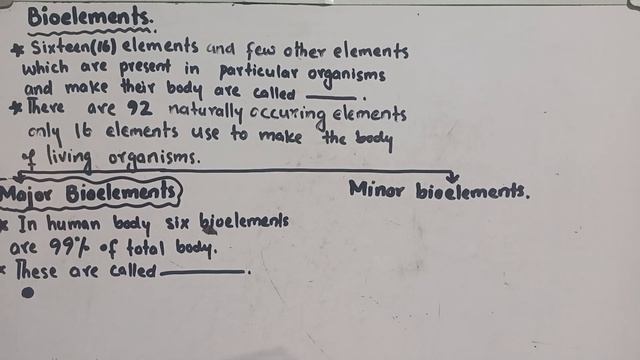 Bioelements.
* Sixteen(16) elements and few other elements
which are present in particular organisms
and make their body are called ______.
* There are 92 naturally occuring elements
only 16 elements use to make the body
of living organisms.
Major Bioelements
Minor bioelements.
* In human body six bioelements
are 99% of total body.
* These are called ______.